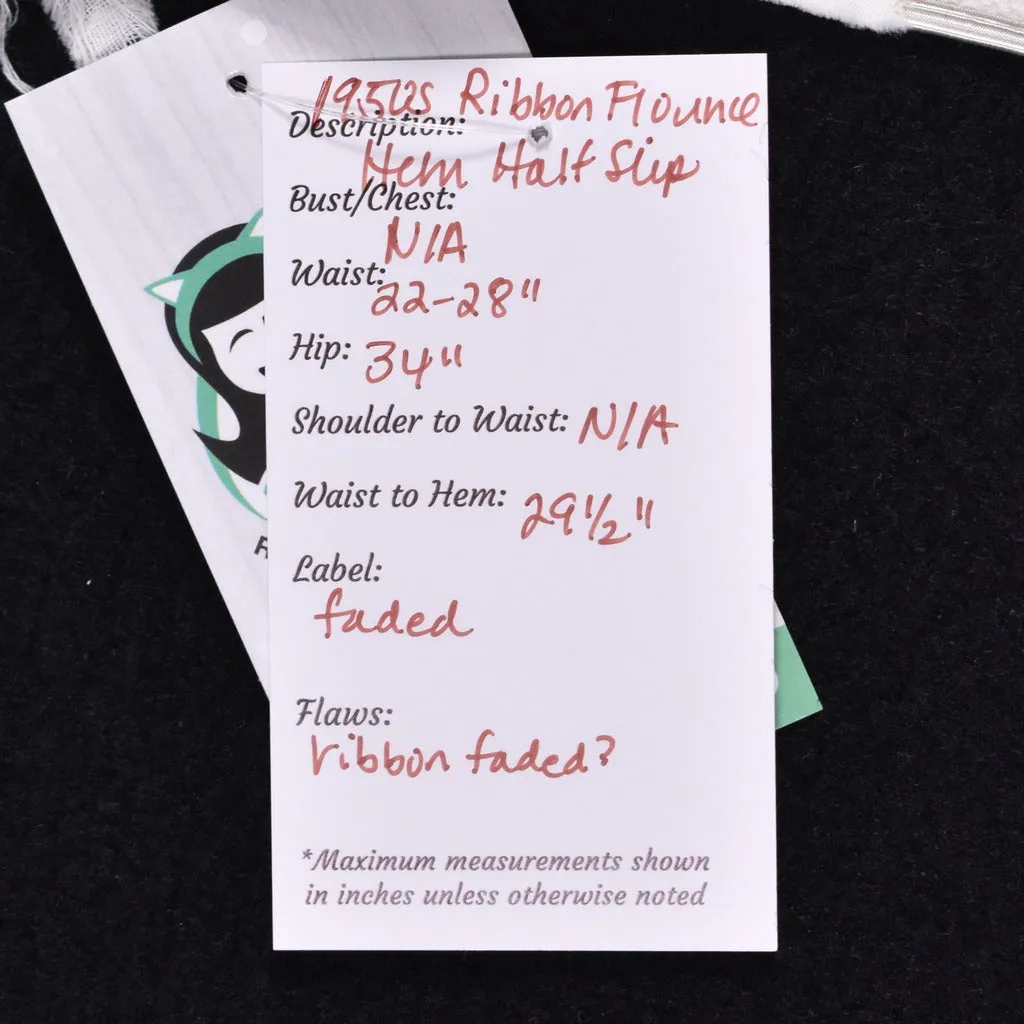 1950s Ribbon Flounce
Description:
Hem Half Slip
Bust/Chest:
N/A
Waist:
22-28"
Hip: 34"
Shoulder to Waist: N/A
Waist to Hem: 29 1/2"
Label:
faded
Flaws:
ribbon faded?
*Maximum measurements shown
in inches unless otherwise noted